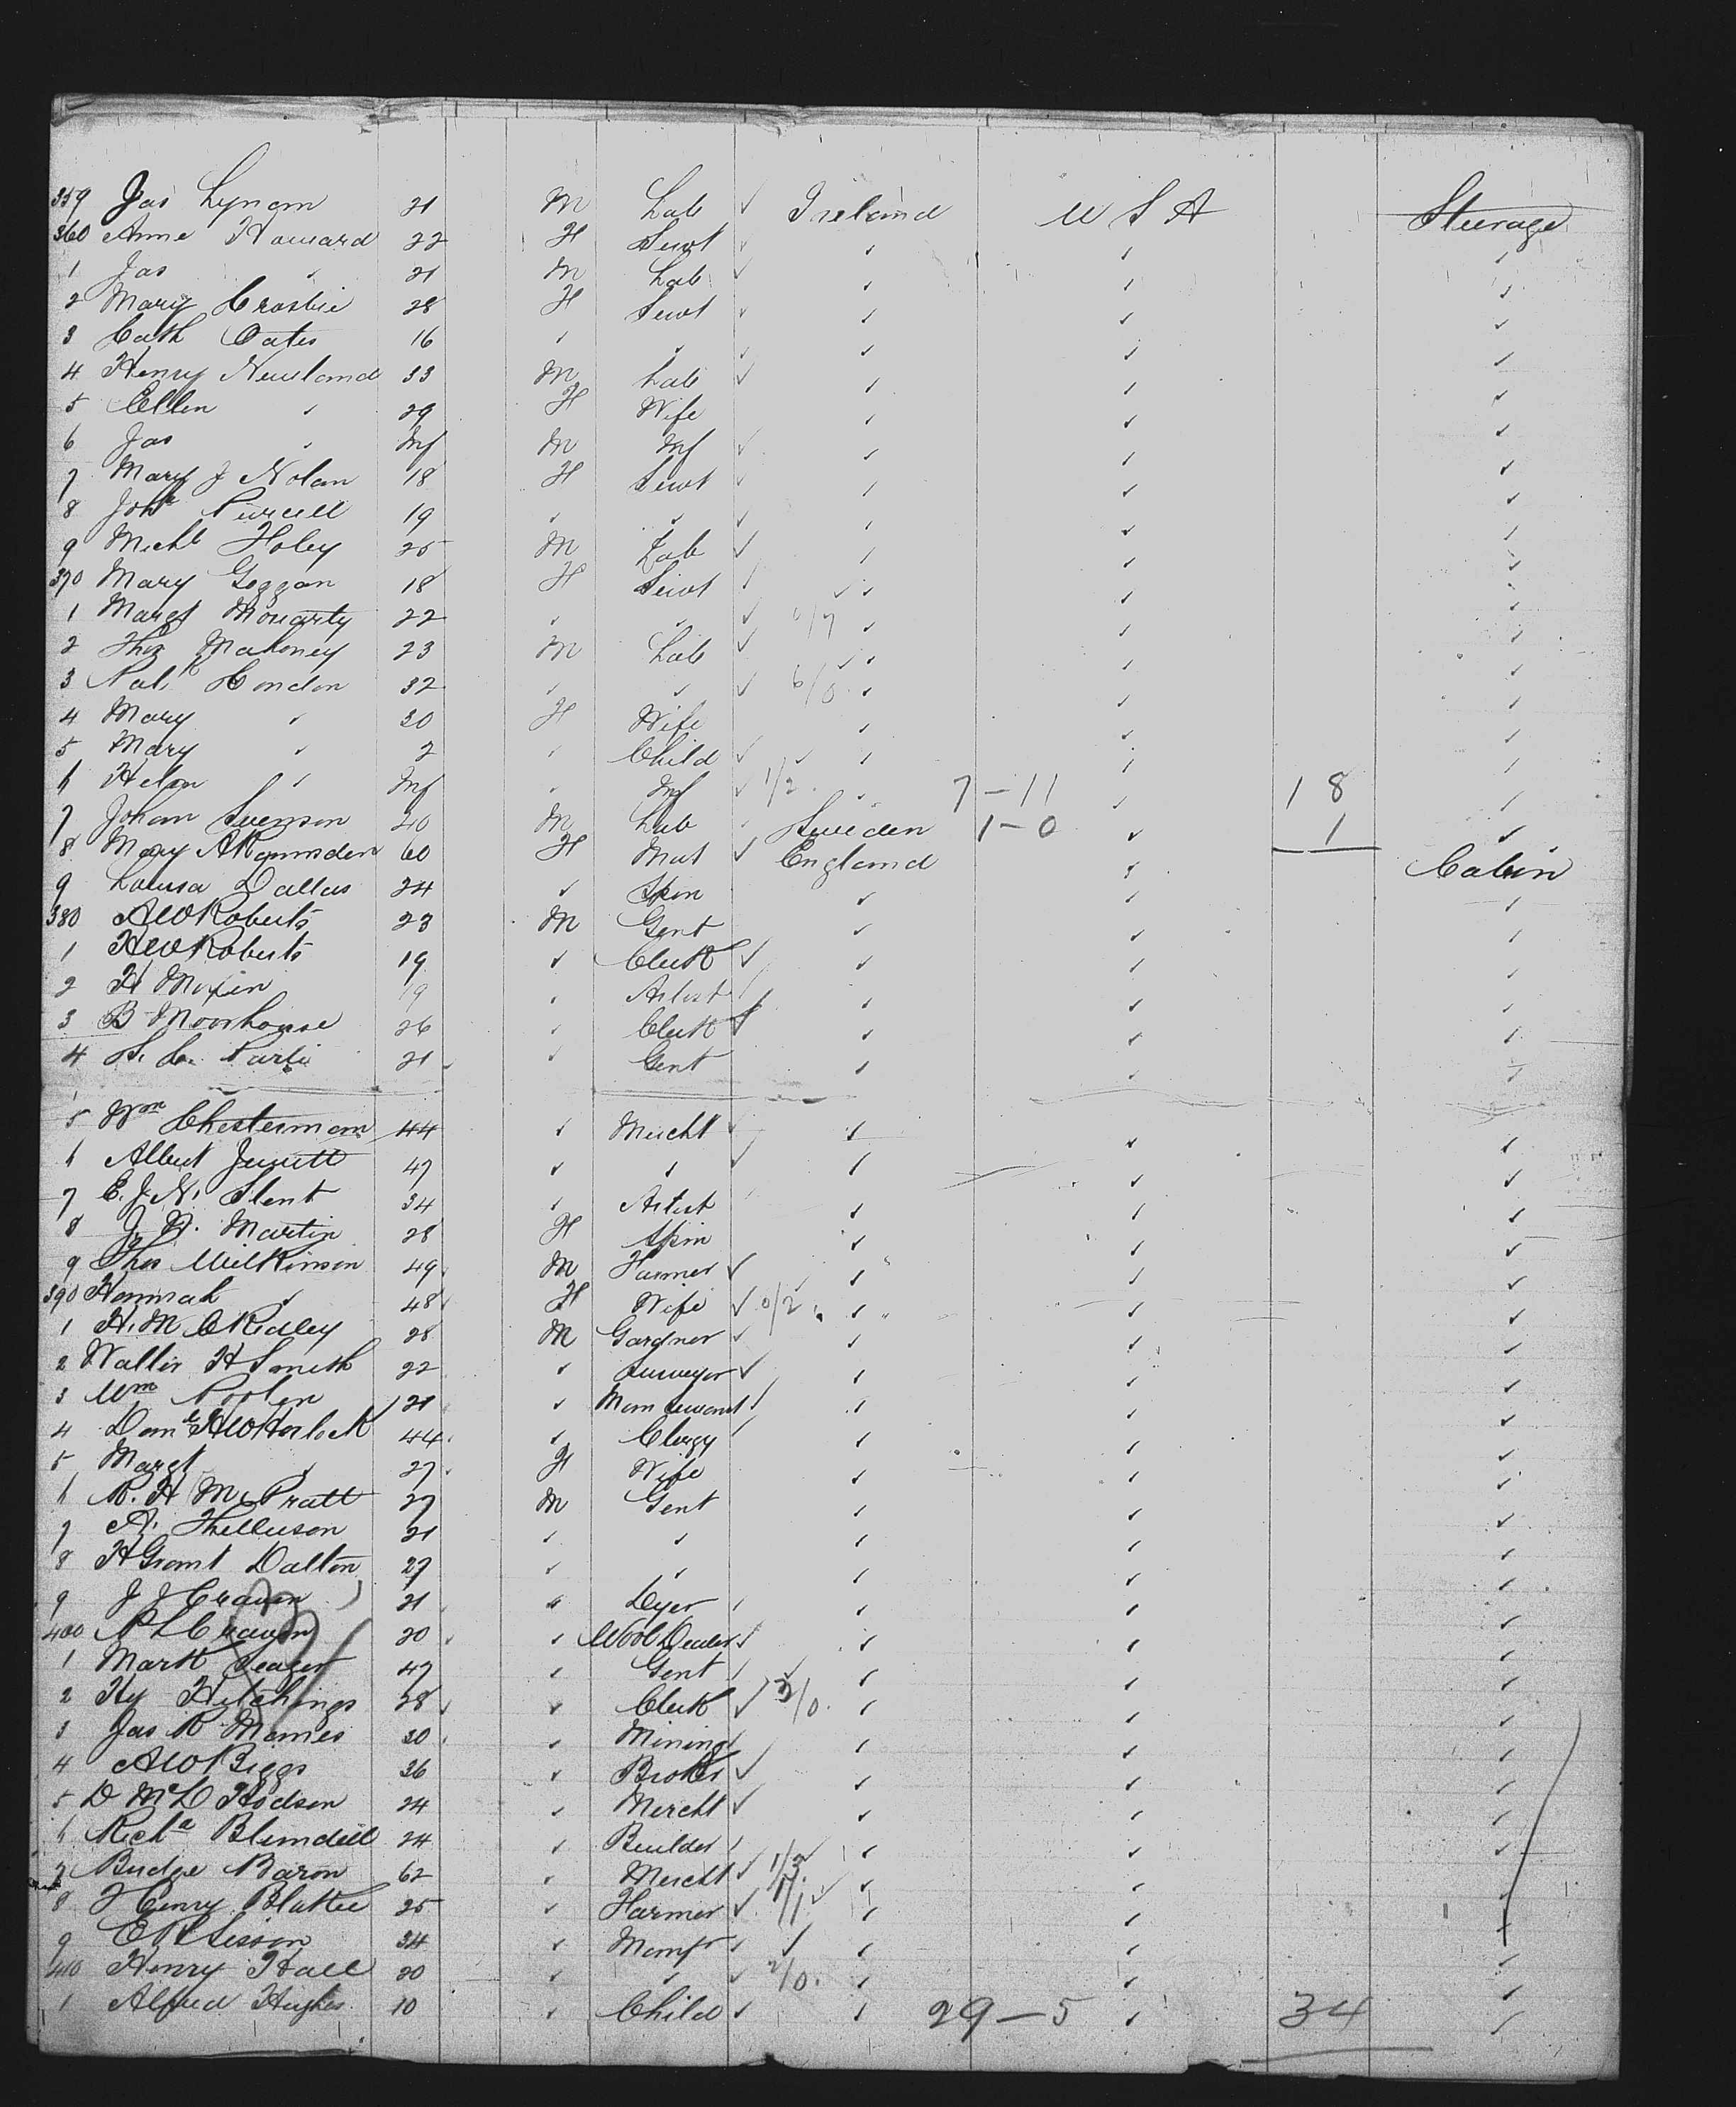 359 Jas Lynam 21 M Lab ✓ Ireland U S A Steerage
360 Anne Howard 22 F Servt ✓ ✓ ✓ ✓
1 Jas ✓ 21 M Lab ✓ ✓ ✓ ✓
2 Mary Crosbie 28 F Servt ✓ ✓ ✓ ✓
3 Cath Oates 16 ✓ ✓ ✓ ✓ ✓ ✓
4 Henry Newland 33 M Lab ✓ ✓ ✓ ✓
5 Ellen ✓ 29 F Wife ✓ ✓ ✓
6 Jas ✓ Inf M Inf ✓ ✓ ✓ ✓
7 Mary J Nolan 18 F Servt ✓ ✓ ✓ ✓
8 Joha Purcell 19 ✓ ✓ ✓ ✓ ✓ ✓
9 Michl Foley 25 M Lab ✓ ✓ ✓ ✓
370 Mary Goggan 18 F Servt ✓ ✓ ✓ ✓
1 Margt Moriarty 22 ✓ ✓ ✓ 0/7 ✓ ✓ ✓
2 Thos Mahoney 23 M Lab ✓ ✓ ✓ ✓
3 Patk Condon 32 ✓ ✓ ✓ 6/0 ✓ ✓ ✓
4 Mary ✓ 30 F Wife ✓ ✓ ✓
5 Mary ✓ 2 ✓ Child ✓ ✓ ✓ ✓ ✓
6 Helen ✓ Inf ✓ Inf ✓ 1/2 ✓ 7-11 ✓ 18 ✓
7 Johan Svenson 40 M Lab ✓ Sweden 1-0 ✓ 1 ✓
8 Mary A Ramsden 60 F Mat ✓ England ✓ Cabin
9 Louisa Dallas 24 ✓ Spin ✓ ✓ ✓
380 A W Roberts 23 M Gent ✓ ✓ ✓
1 H W Roberts 19 ✓ Clerk ✓ ✓ ✓ ✓
2 H 19 ✓ Artist ✓ ✓ ✓ ✓
3 B Moorhouse 26 ✓ Clerk ✓ ✓ ✓ ✓
4 21 ✓ Gent ✓ ✓ ✓
5 Wm Chesterman 44 ✓ Mercht ✓ ✓ ✓ ✓
6 Albert Jewett 47 ✓ ✓ ✓ ✓ ✓ ✓
7 E. J. N. Slent 34 ✓ Artist ✓ ✓ ✓ ✓
8 Martin 28 F Spin ✓ ✓ ✓
9 Thos Wilkinson 49 M Farmer ✓ ✓ ✓ ✓
390 Hannah ✓ 48 F Wife ✓ 0/2 ✓ ✓ ✓
1 28 M Gardner ✓ ✓ ✓ ✓
2 Walter H Smith 22 ✓ Surveyor ✓ ✓ ✓ ✓
3 Wm 21 ✓ Man Servant ✓ ✓ ✓ ✓
4 Danl 44 ✓ Clergy ✓ ✓ ✓ ✓
5 Margt ✓ 27 F Wife ✓ ✓ ✓
6 R. H Mc Pratt 27 M Gent ✓ ✓ ✓
7 A. Thellusson 21 ✓ ✓ ✓ ✓ ✓
8 H Grant Dalton 27 ✓ ✓ ✓ ✓ ✓
9 J J Craven 21 ✓ Dyer ✓ ✓ ✓ ✓
400 P L Craven 20 ✓ Wool Dealer ✓ ✓ ✓ ✓
1 Mark Seager 47 ✓ Gent ✓ ✓ ✓ ✓
2 Hy Hitchings 28 ✓ Clerk ✓ 3/0 ✓ ✓ ✓
3 Jas R Mames 30 ✓ Mining ✓ ✓ ✓ ✓
4 A W Biggs 36 ✓ Broker ✓ ✓ ✓ ✓
5 D McD Hodson 24 ✓ Mercht ✓ ✓ ✓ ✓
6 Richd Blundell 24 ✓ Builder ✓ ✓ ✓ ✓
7 Budge Baron 62 ✓ Mercht ✓ 1/3 ✓ ✓ ✓
8 Henry 25 ✓ Farmer ✓ ✓ ✓ ✓
9 Sisson 34 ✓ Manfr ✓ ✓ ✓ ✓ ✓
410 Henry Hall 20 ✓ ✓ ✓ 2/0 ✓ ✓ ✓
1 Alfred Hughes 10 ✓ Child ✓ ✓ 29-5 ✓ 34 ✓